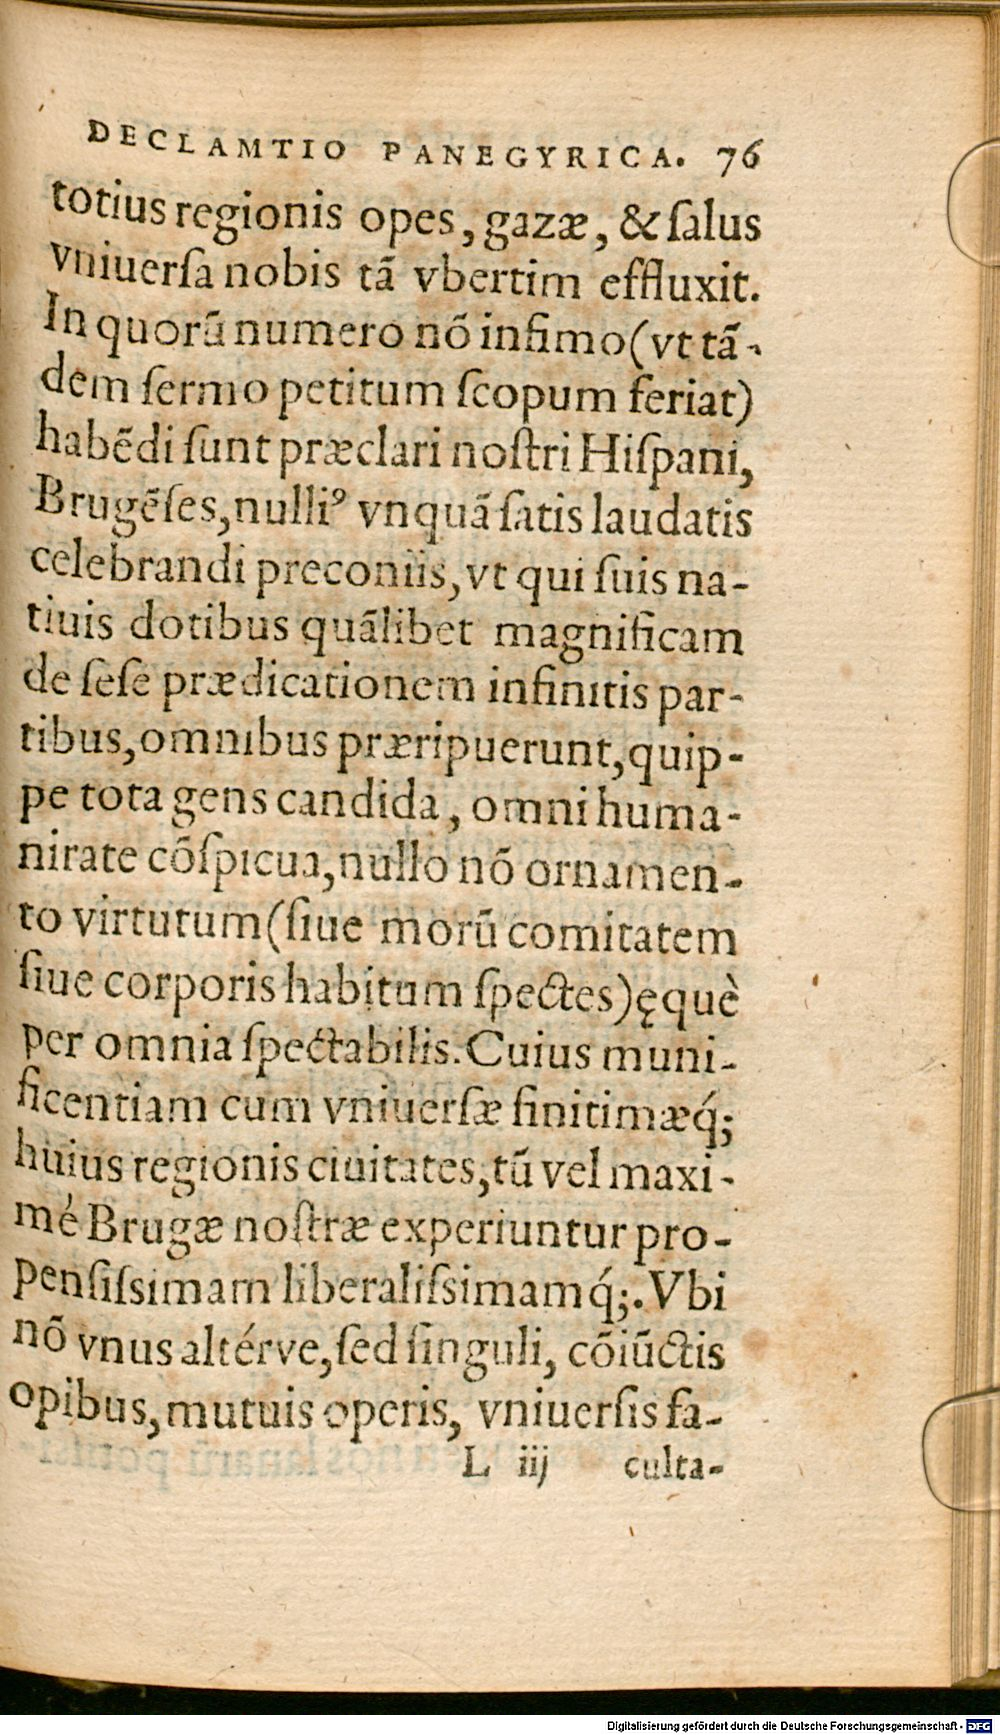 DECLAMTIO PANEGYRICA. 76
totius regionis opes, gazæ, & ſalus
vniuerſa nobis tā vbertim effluxit.
In quorū numero nō infimo (vt tā-
dem ſermo petitum ſcopum feriat)
habēdi ſunt præclari noſtri Hiſpani,
Brugēſes, nulliꝰ vnquā ſatis laudatis
celebrandi preconiis, vt qui ſuis na-
tiuis dotibus quālibet magnificam
de ſeſe prædicationem infinitis par-
tibus, omnibus præripuerunt, quip-
pe tota gens candida, omni huma-
nirate cōſpicua, nullo nō ornamen-
to virtutum (ſiue morū comitatem
ſiue corporis habitum ſpectes) ęquè
per omnia ſpectabilis. Cuius muni-
ficentiam cum vniuerſæ finitimæq́;
huius regionis ciuitates, tū vel maxi-
mé Brugæ noſtræ experiuntur pro-
penſiſsimam liberaliſsimamq́;. Vbi
nō vnus altérve, ſed ſinguli, cōiūctis
opibus, mutuis operis, vniuerſis fa-
L iij culta-
Digitalisierung gefördert durch die Deutsche Forschungsgemeinschaft - DFG